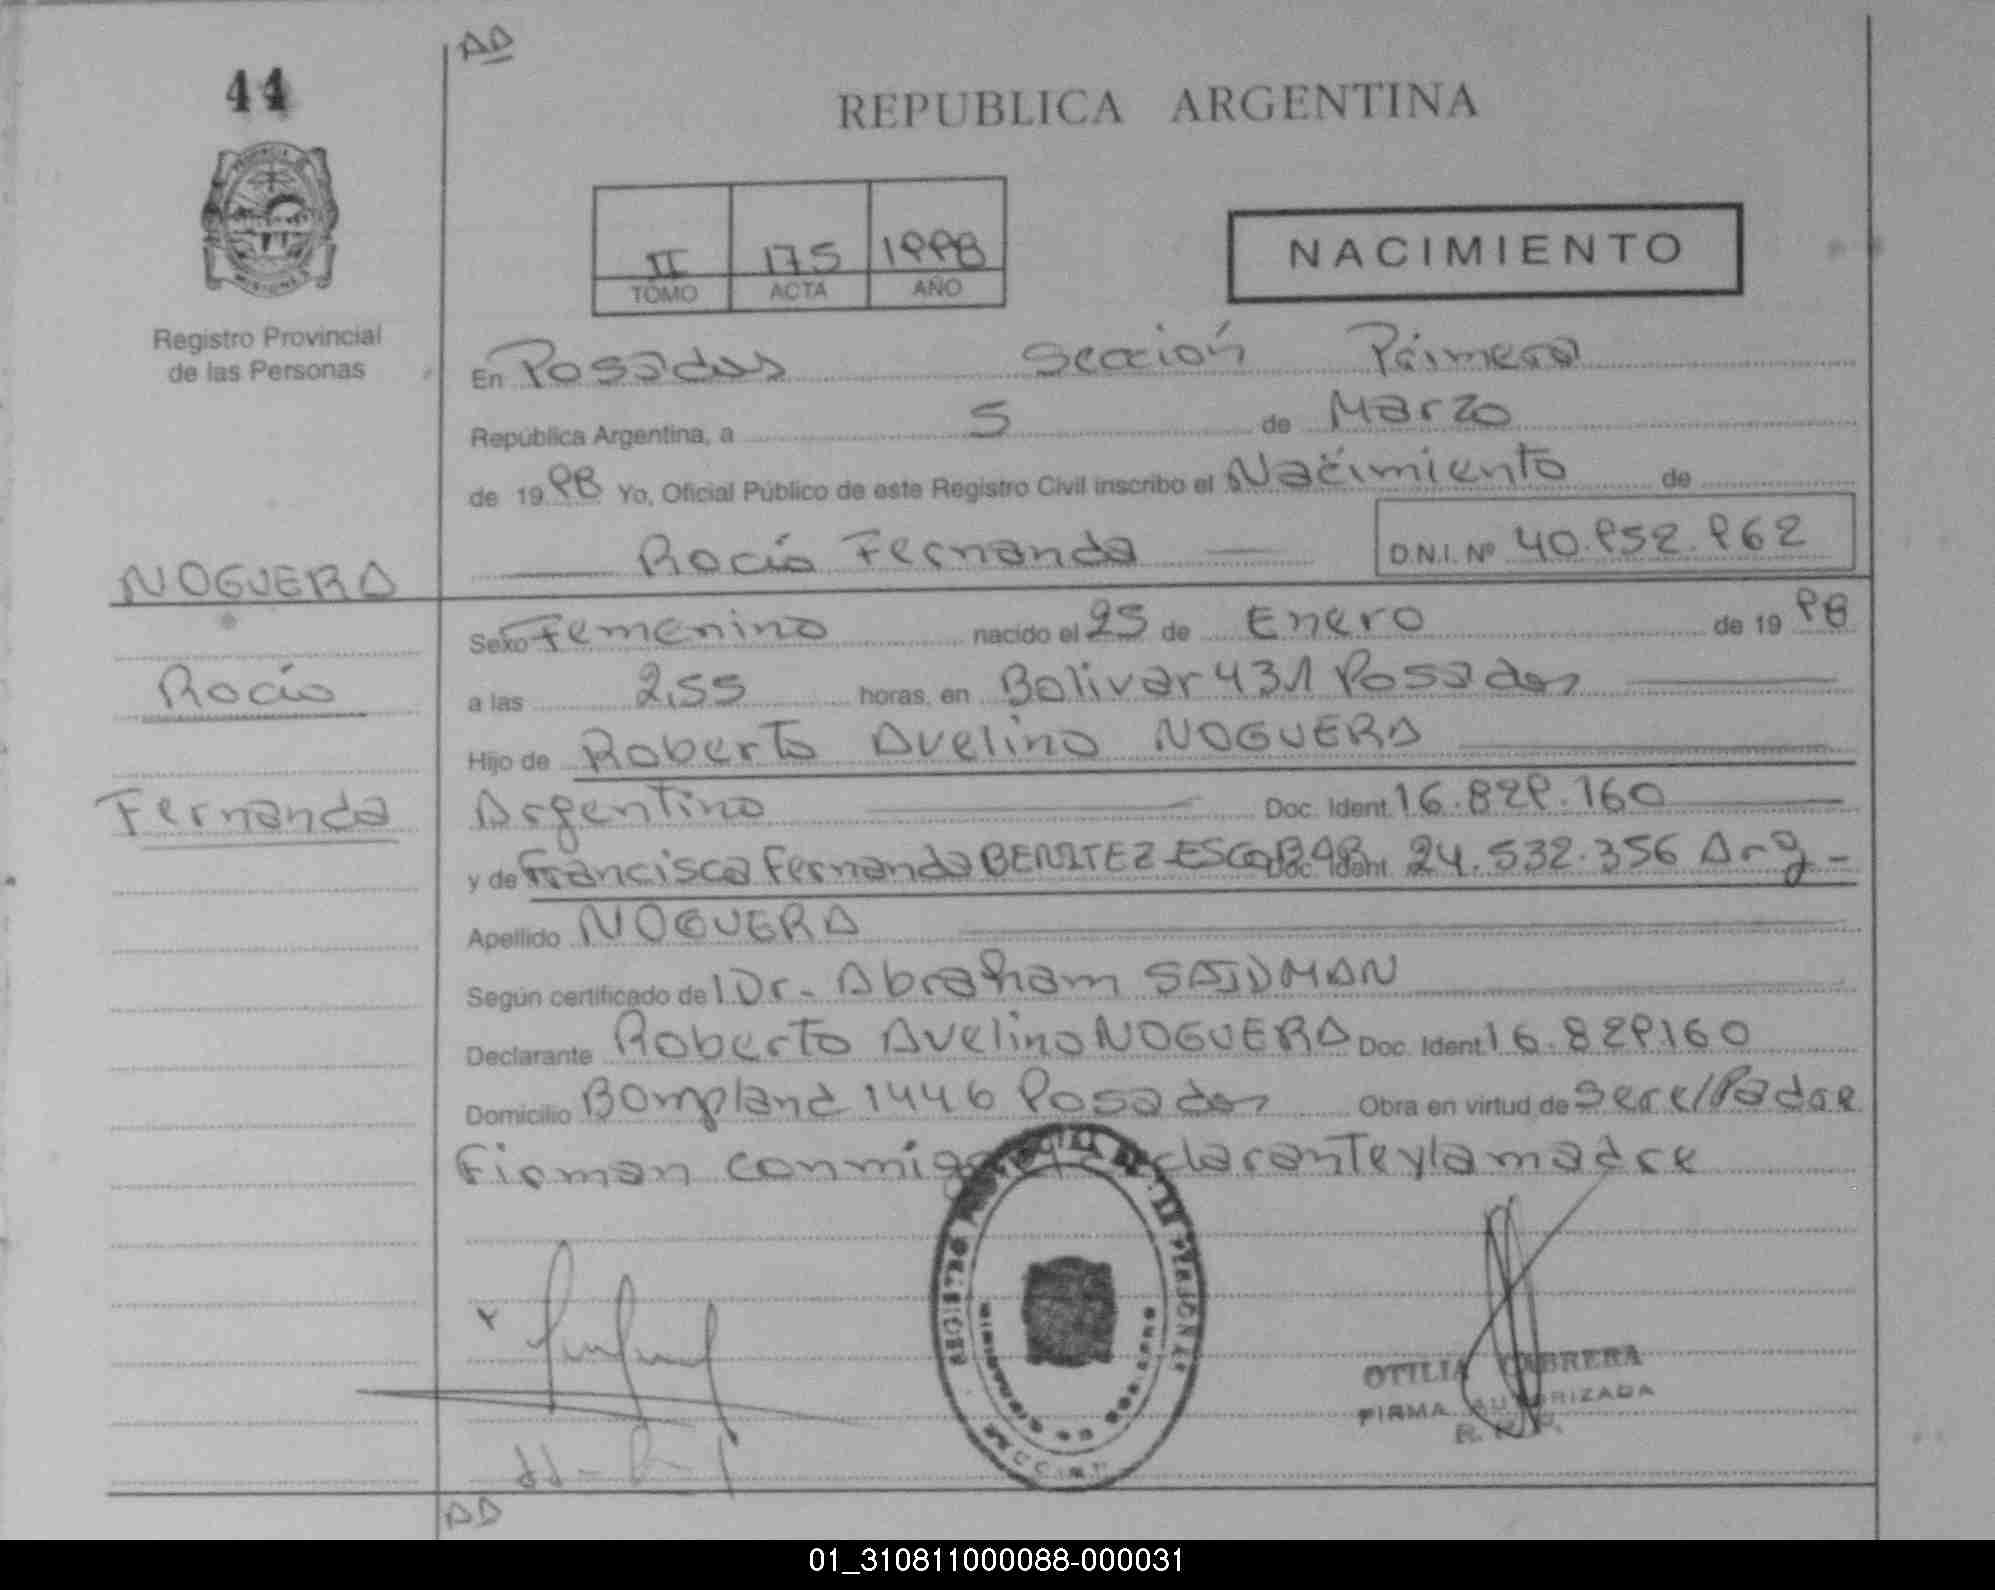 AD
44
REPUBLICA ARGENTINA
II 175 1998
TOMO ACTA AÑO
NACIMIENTO
Registro Provincial
de las Personas
En Posadas Sección Primera
República Argentina, a 5 de Marzo
de 1998 Yo, Oficial Público de este Registro Civil inscribo el Nacimiento de
Rocío Fernanda D.N.I. Nº 40.952.962
NOGUERA
Sexo Femenino nacido el 25 de Enero de 1998
Rocío
a las 2,55 horas, en Bolivar 431 Posadas
Hijo de Roberto Avelino NOGUERA
Fernanda
Argentino Doc. Ident. 16.829.160
y de Francisca Fernanda BENITEZ ESCOBAR Doc. Ident. 24.532.356 Arg-
Apellido NOGUERA
Según certificado del Dr. Abraham SAIDMAN
Declarante Roberto Avelino NOGUERA Doc. Ident. 16.829160
Domicilio Bompland 1446 Posadas Obra en virtud de Ser el Padre
Firman conmigo declarante y la madre
REGISTRO PERSONAS
OTILIA CABRERA
FIRMA AUTORIZADA
AD
01_310811000088-000031